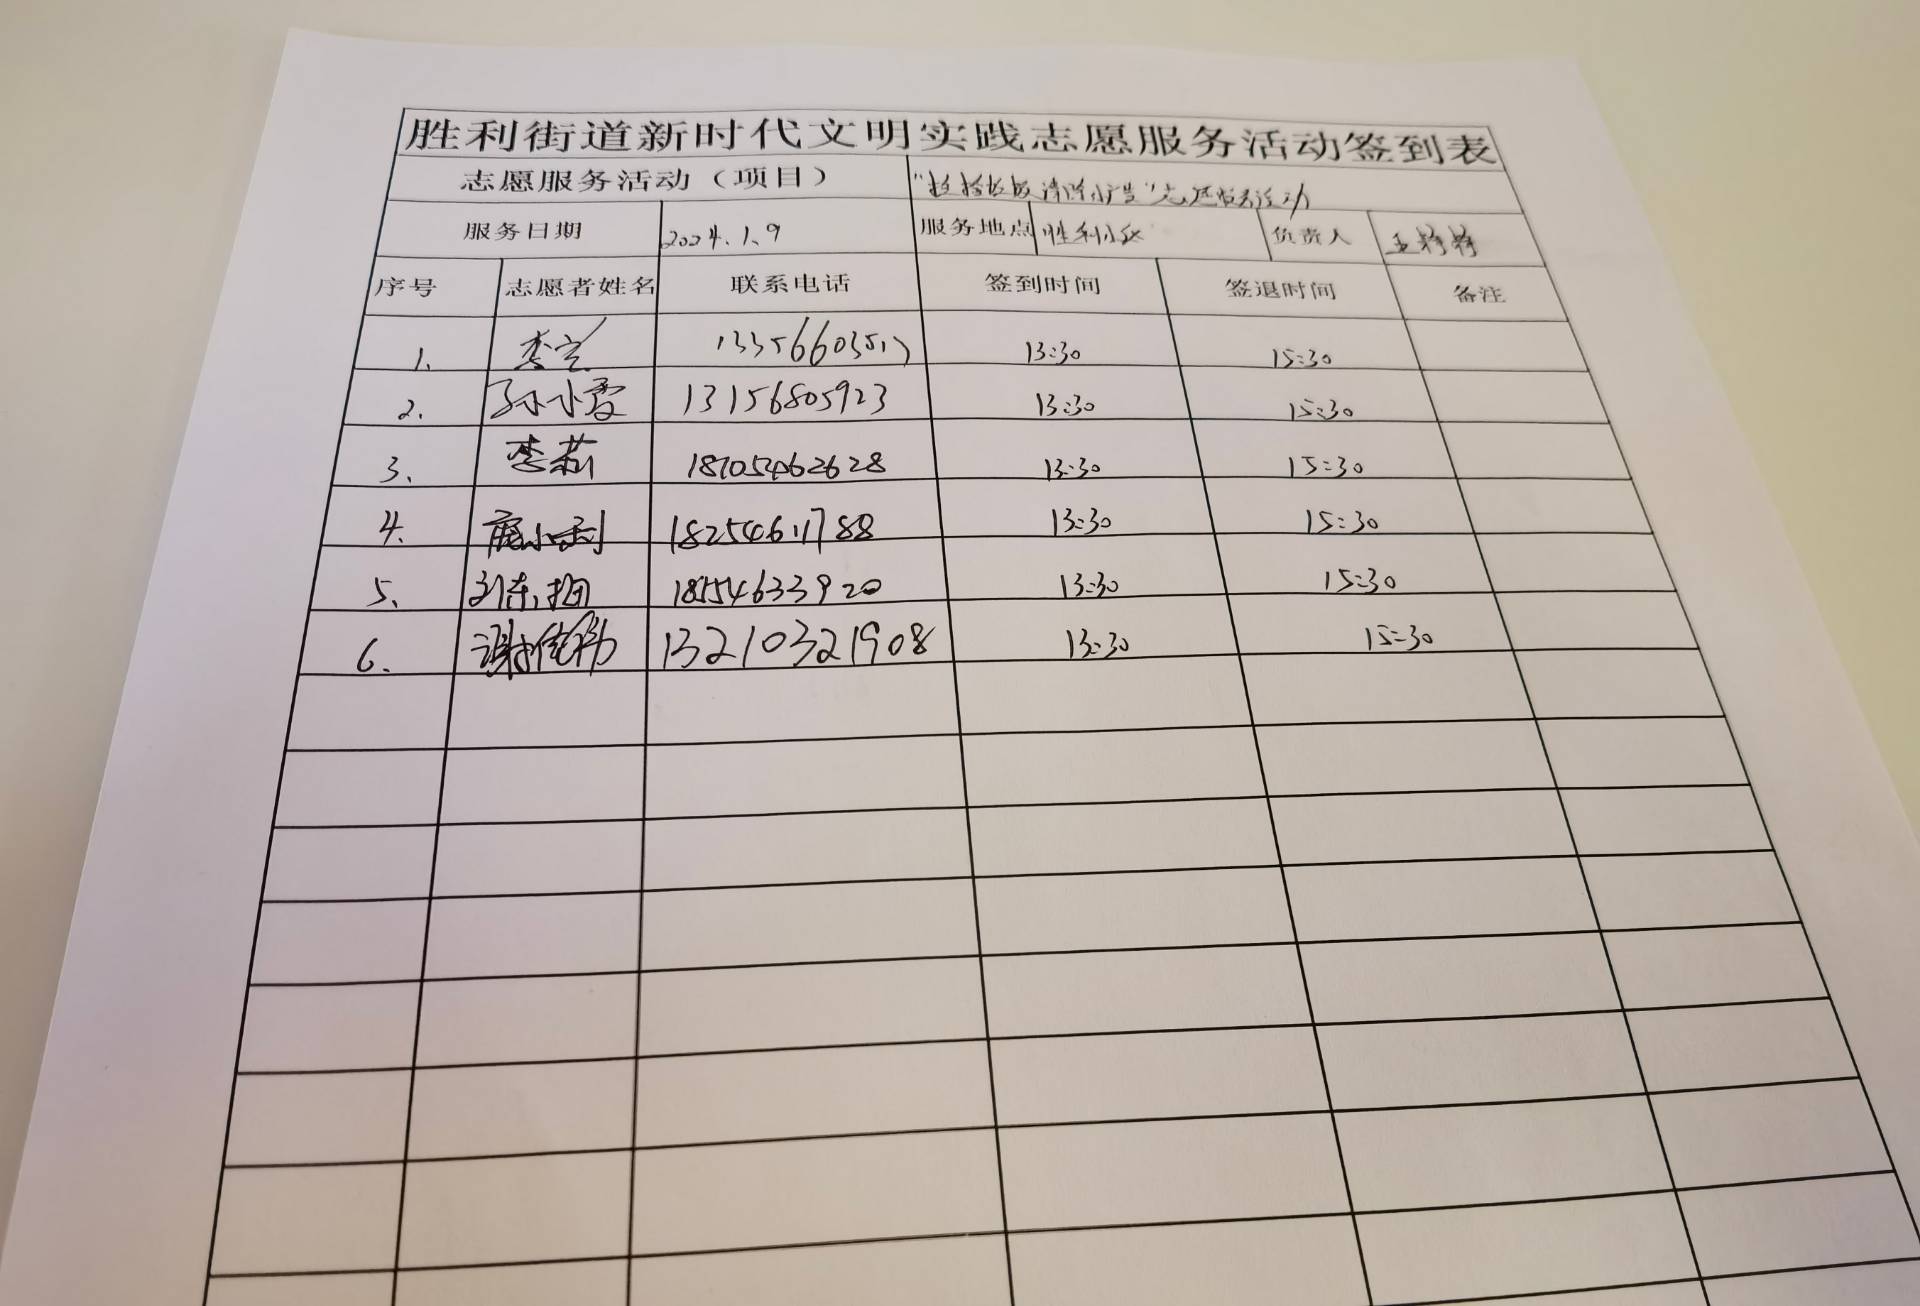 胜利街道新时代文明实践志愿服务活动签到表
志愿服务活动（项目） 清除小广告"志愿服务活动
服务日期 2024.1.9 服务地点 胜利小区 负责人
序号 志愿者姓名 联系电话 签到时间 签退时间 备注
1. 13356603517 13:30 15:30
2. 孙小霞 13156805923 13:30 15:30
3. 李莉 18705462628 13:30 15:30
4. 18254611788 13:30 15:30
5. 18154633920 13:30 15:30
6. 13210321908 13:30 15:30